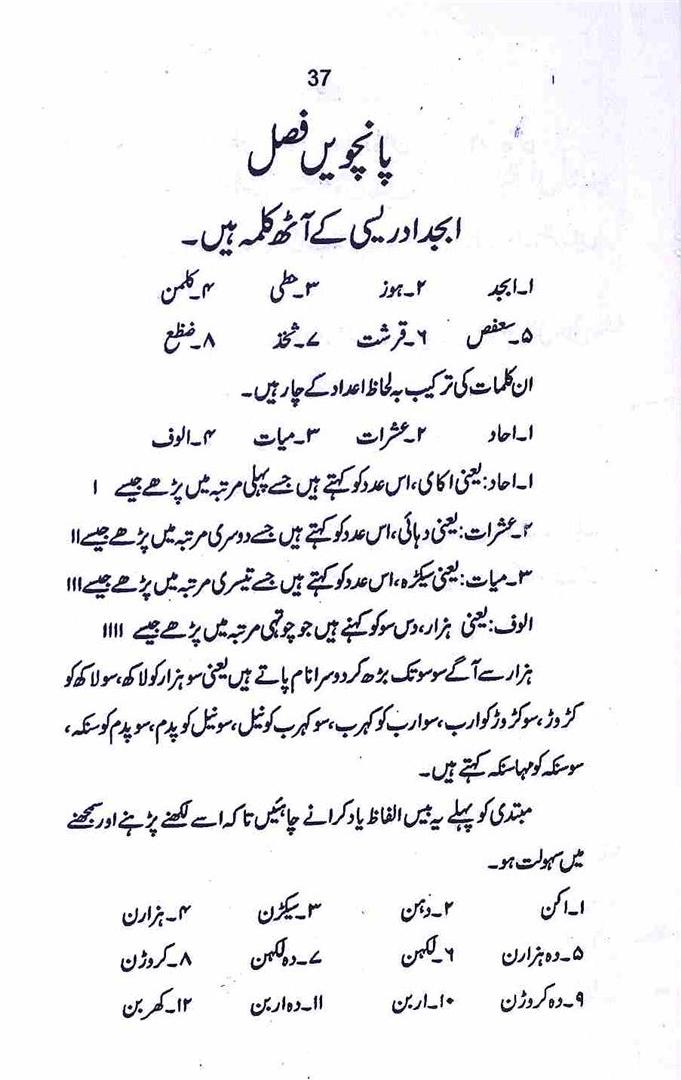 37
پانچویں فصل
ابجد ادریسی کے آٹھ کلمہ ہیں۔
۱۔ابجد ۲۔ہوز ۳۔حطی ۴۔کلمن
۵۔سعفص ۶۔قرشت ۷۔ثخذ ۸۔ضظغ
ان کلمات کی ترکیب بہ لحاظ اعداد کے چار ہیں۔
۱۔احاد ۲۔عشرات ۳۔میات ۴۔الوف
۱۔احاد: یعنی اکای، اس عدد کو کہتے ہیں جسے پہلی مرتبہ میں پڑھے جیسے ۱
۲۔عشرات: یعنی دہائی، اس عدد کو کہتے ہیں جسے دوسری مرتبہ میں پڑھے جیسے ۱۱
۳۔میات: یعنی سیکڑہ، اس عدد کو کہتے ہیں جسے تیسری مرتبہ میں پڑھے جیسے ۱۱۱
الوف: یعنی ہزار، دس سو کو کہنے ہیں جو چوتہی مرتبہ میں پڑھے جیسے ۱۱۱۱
ہزار سے آگے سو سو تک بڑھ کر دوسرا نام پاتے ہیں یعنی سو ہزار کو لاکھ، سو لاکھ کو
کڑوڑ، سو کڑوڑ کو ارب، سو ارب کو کہرب، سو کہرب کو نیل، سو نیل کو پدم، سو پدم کو سنکہ،
سو سنکہ کو مہاسنکہ کہتے ہیں۔
مبتدی کو پہلے یہ بیس الفاظ یاد کرانے چاہئیں تاکہ اسے لکھنے پڑہنے اور سمجھنے
میں سہولت ہو۔
۱۔اکن ۲۔دہن ۳۔سیکڑن ۴۔ہزارن
۵۔دہ ہزارن ۶۔لکہن ۷۔دہ لکہن ۸۔کروڑن
۹۔دہ کروڑن ۱۰۔اربن ۱۱۔دہ اربن ۱۲۔کھربن